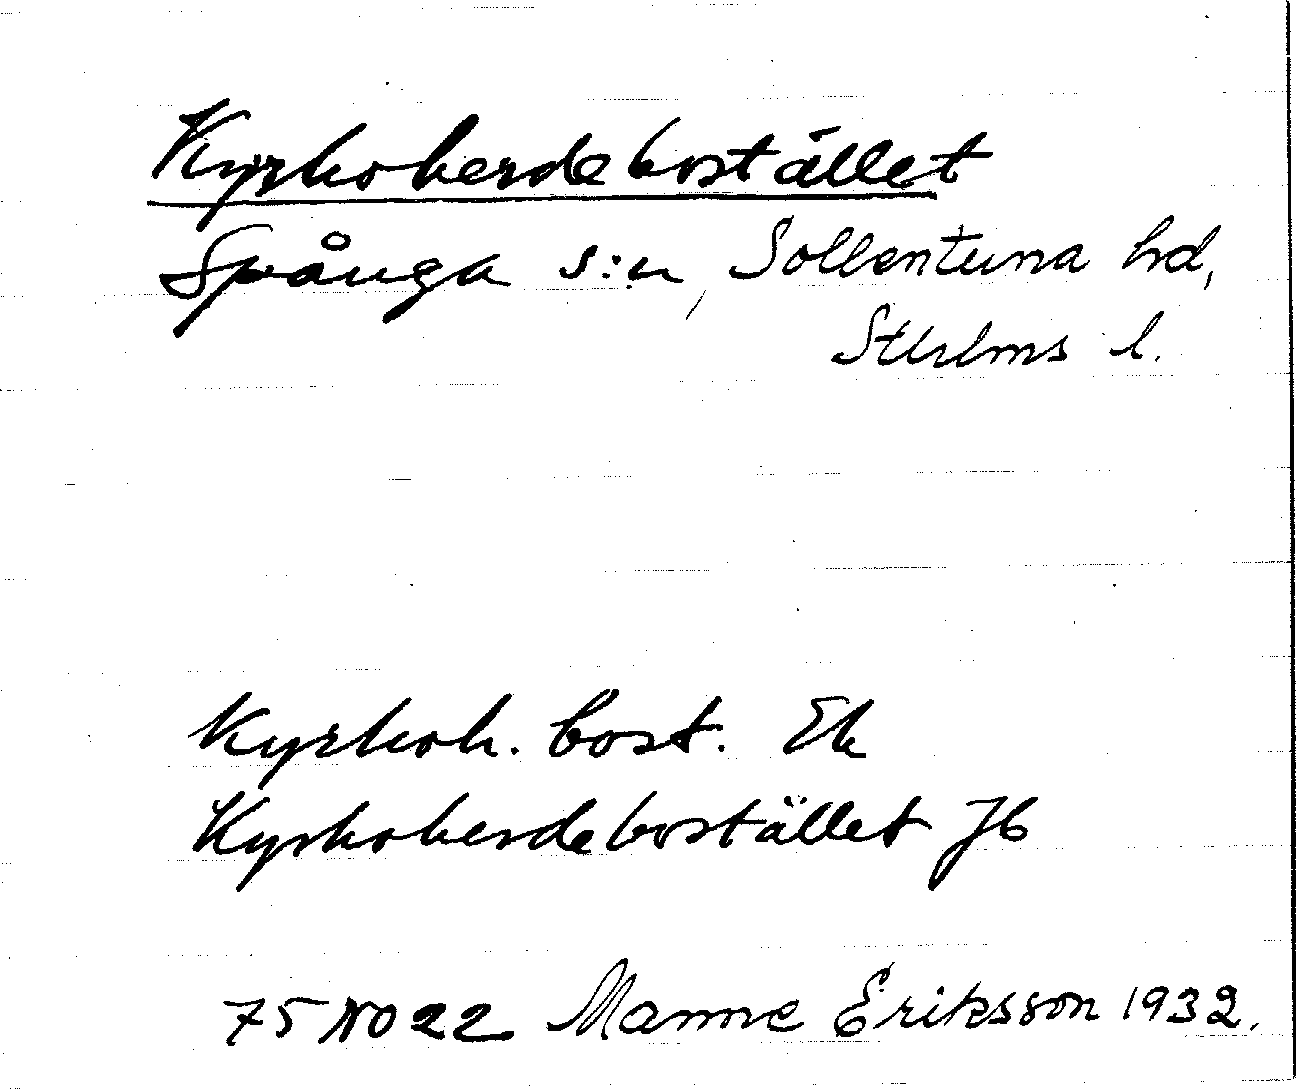 Kyrkoherdebostället
Spånga s:n, Sollentuna hd,
Sthlms l.
Kyrkoh. bost. Ek
Kyrkoherdebostället Jb
75 NO 22 Manne Eriksson 1932.